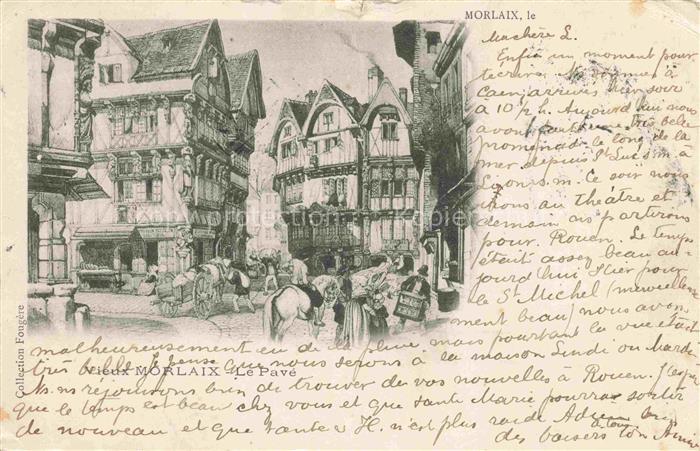 MORLAIX, le
Ma chère L.
Enfin un moment pour
t'écrire. Ns sommes à
Caen arrivés hier soir
à 10 ½ h. Aujourd'hui nous
avons très belle
promenade le long de la
mer depuis St Luc s. m. à
Lion s. m. Ce soir nous
irons au théâtre et
demain ns partirons
pour Rouen. Le temps
était assez beau au-
jourd'hui. Hier pour
le St Michel (merveilleuse-
ment beau) nous avons
malheureusement eu de la pluie mais pourtant la vue était
très belle. Je pense que nous serons à la maison Lundi ou Mardi
Vieux MORLAIX Le Pavé
Ns ns réjouissons bien de trouver de vos nouvelles à Rouen. J'espère
que le temps est beau chez vous et que tante Marie pourra sortir
de nouveau et que tante H. n'est plus raide Adieu bien
à tous
des baisers ton
Collection Fougère